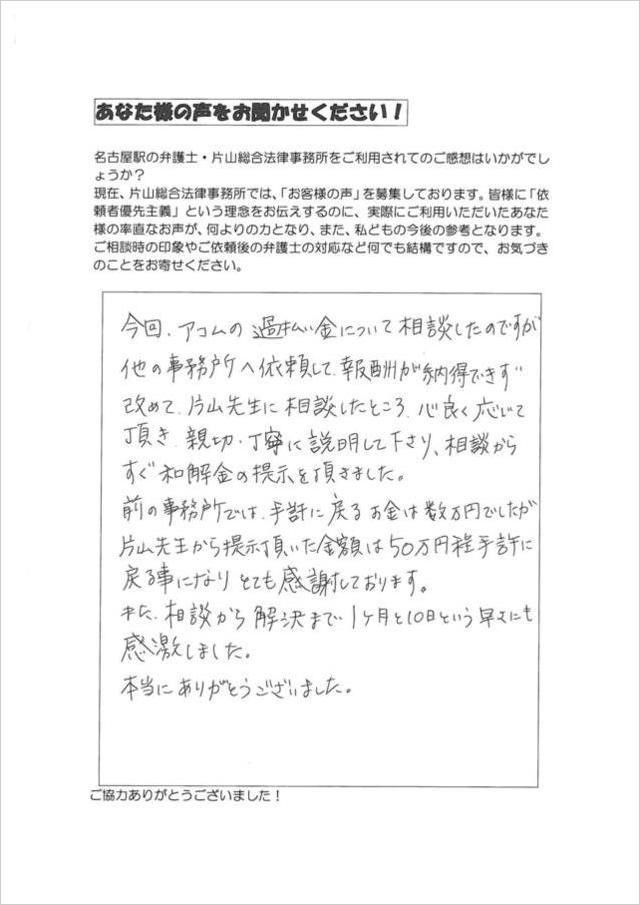 あなた様の声をお聞かせください！
名古屋駅の弁護士・片山総合法律事務所をご利用されてのご感想はいかがでし
ょうか？
現在、片山総合法律事務所では、「お客様の声」を募集しております。皆様に「依
頼者優先主義」という理念をお伝えするのに、実際にご利用いただいたあなた
様の率直なお声が、何よりの力となり、また、私どもの今後の参考となります。
ご相談時の印象やご依頼後の弁護士の対応など何でも結構ですので、お気づき
のことをお寄せください。
今回、アコムの過払い金について相談したのですが
他の事務所へ依頼して、報酬が納得できず
改めて、片山先生に相談したところ、心良く応じて
頂き、親切・丁寧に説明して下さり、相談から
すぐ和解金の提示を頂きました。
前の事務所では、手許に戻るお金は数万円でしたが
片山先生から提示頂いた金額は50万円程手許に
戻る事になりとても感謝しております。
また、相談から解決まで1ヶ月と10日という早さにも
感激しました。
本当にありがとうございました。
ご協力ありがとうございました！